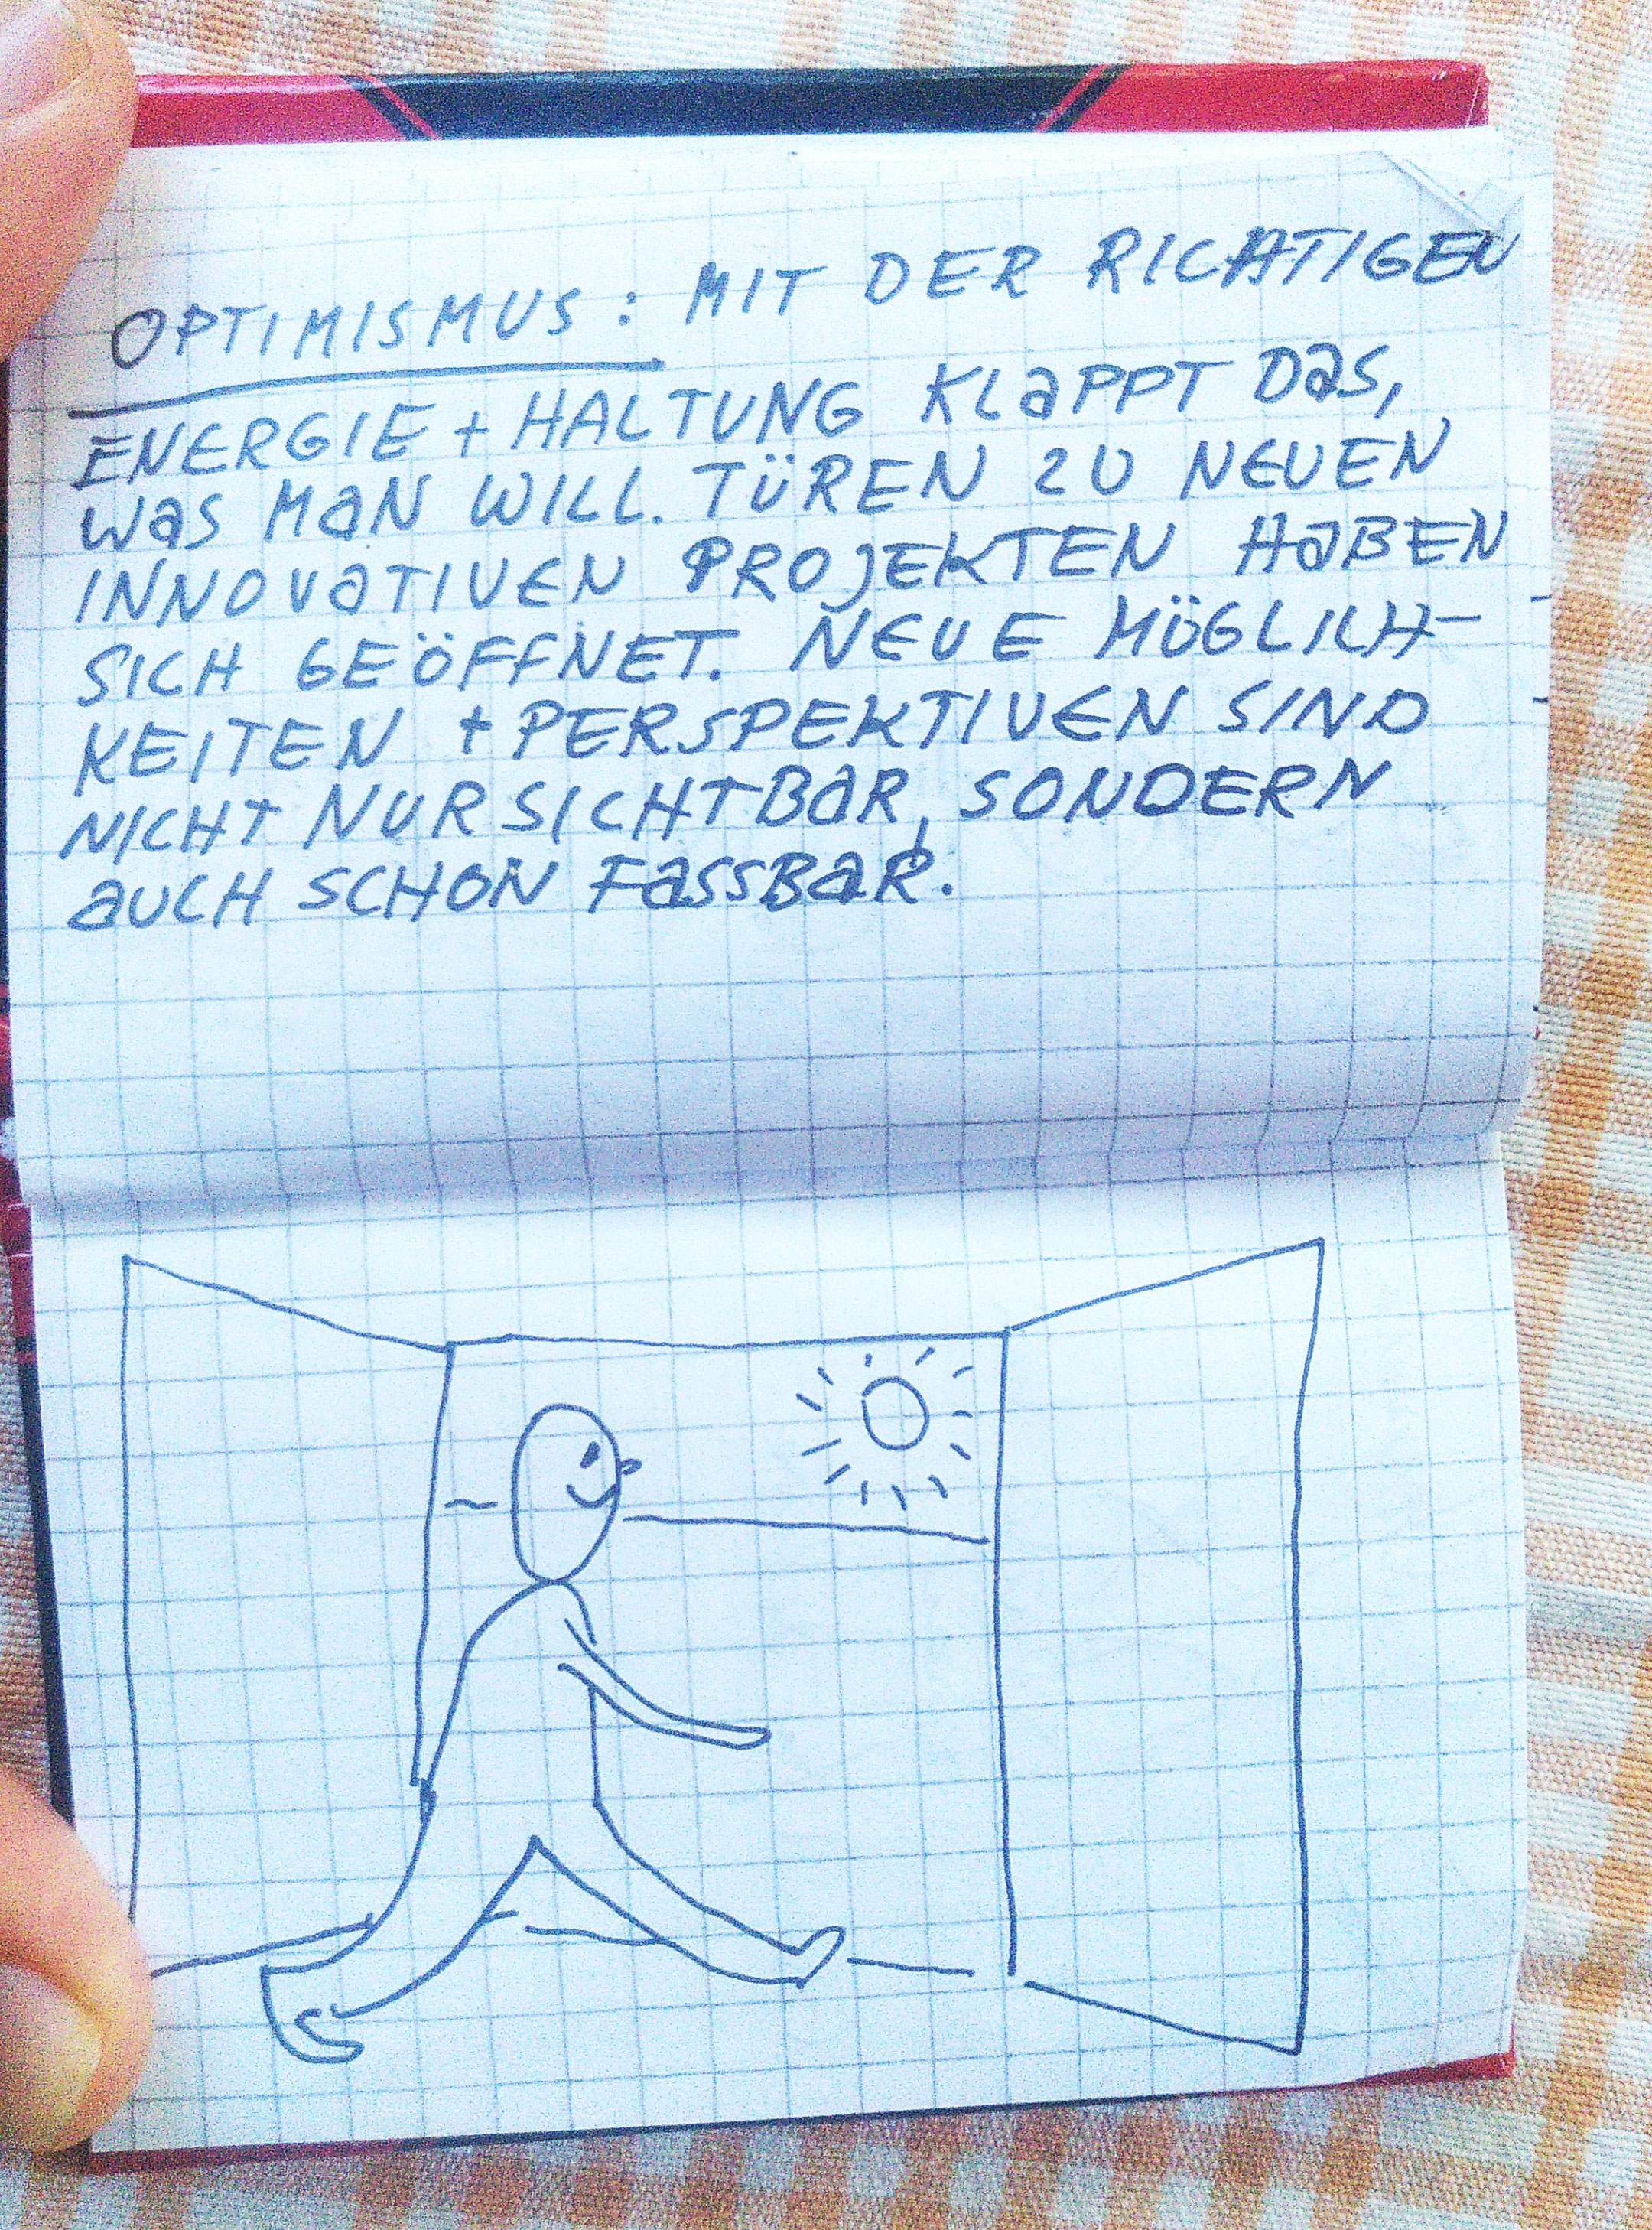 OPTIMISMUS: MIT DER RICHTIGEN
ENERGIE + HALTUNG KLaPPT Das,
Was MaN WILL. TÜREN ZU NEUEN
INNOVaTIVEN PROJEKTEN HaBEN
SICH GEÖFFNET. NEUE MÖGLICH-
KEITEN + PERSPEKTIVEN SIND
NICHT NUR SICHTBaR, SONDERN
aUCH SCHON FaSSBaR.